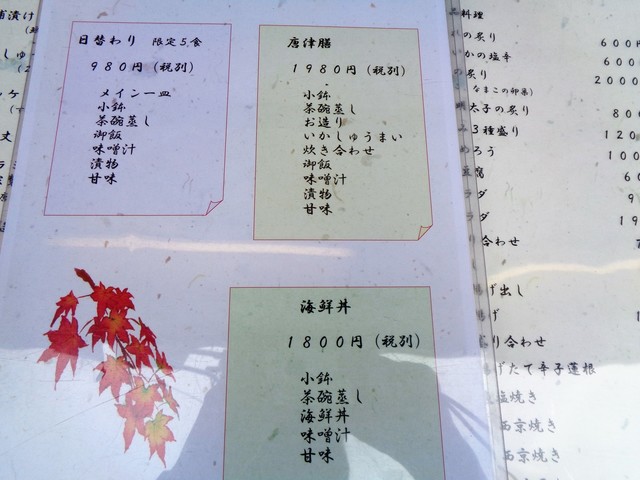 日替わり 限定5食
980円（税別）
メイン一皿
小鉢
茶碗蒸し
御飯
味噌汁
漬物
甘味
唐津膳
1980円（税別）
小鉢
茶碗蒸し
お造り
いかしゅうまい
炊き合わせ
御飯
味噌汁
漬物
甘味
海鮮丼
1800円（税別）
小鉢
茶碗蒸し
海鮮丼
味噌汁
甘味
料理
の炙り 600円
かの塩辛 600
の炙り 2000
なまこの卵巣）
太子の炙り 80
み3種盛り 120
めろう 100
豆腐 60
ラダ 9
ラダ 19
合わせ
げ出し
げ
り合わせ
げたて辛子蓮根
塩焼き
西京焼き
西京焼き